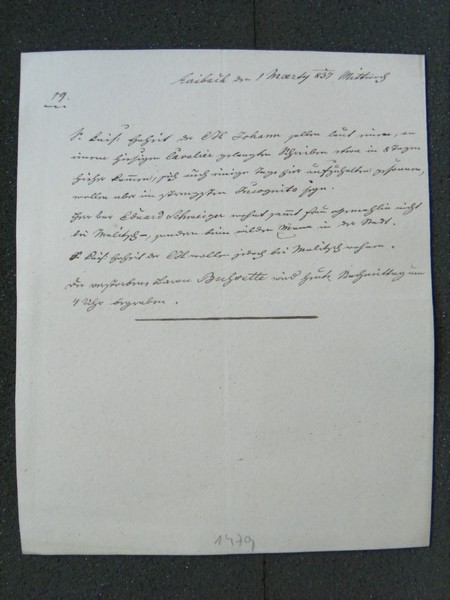 Laibach den 1 Maerz 837 Mittwoch
19.
Sr Kais. Hoheit der EH Johann sollen laut eines, an
einen hiesigen Cavalier gelangten Schreiben etwa in 8 Tagen
hieher kommen, sich auch einige Tage hier aufzuhalten
wollen aber im strengsten Incognito seyn.
Herr Eduard Schweiger wohnt samt Frau Gemahlin nicht
bei Malitsch, sondern beim wilden Mann in der Stadt.
Sr Kais. Hoheit der EH wollen jedoch bei Malitsch wohnen.
Der verstorbene Baron wird heute Nachmittag um
4 Uhr begraben.
1479